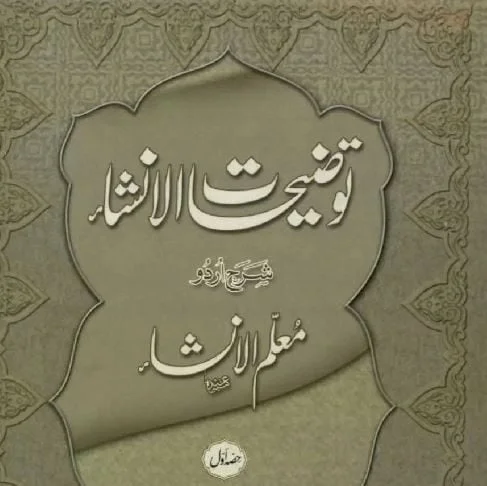 توضیحات الانشاء
شرح اردو
معلّم الانشاء
حصہ اوّل